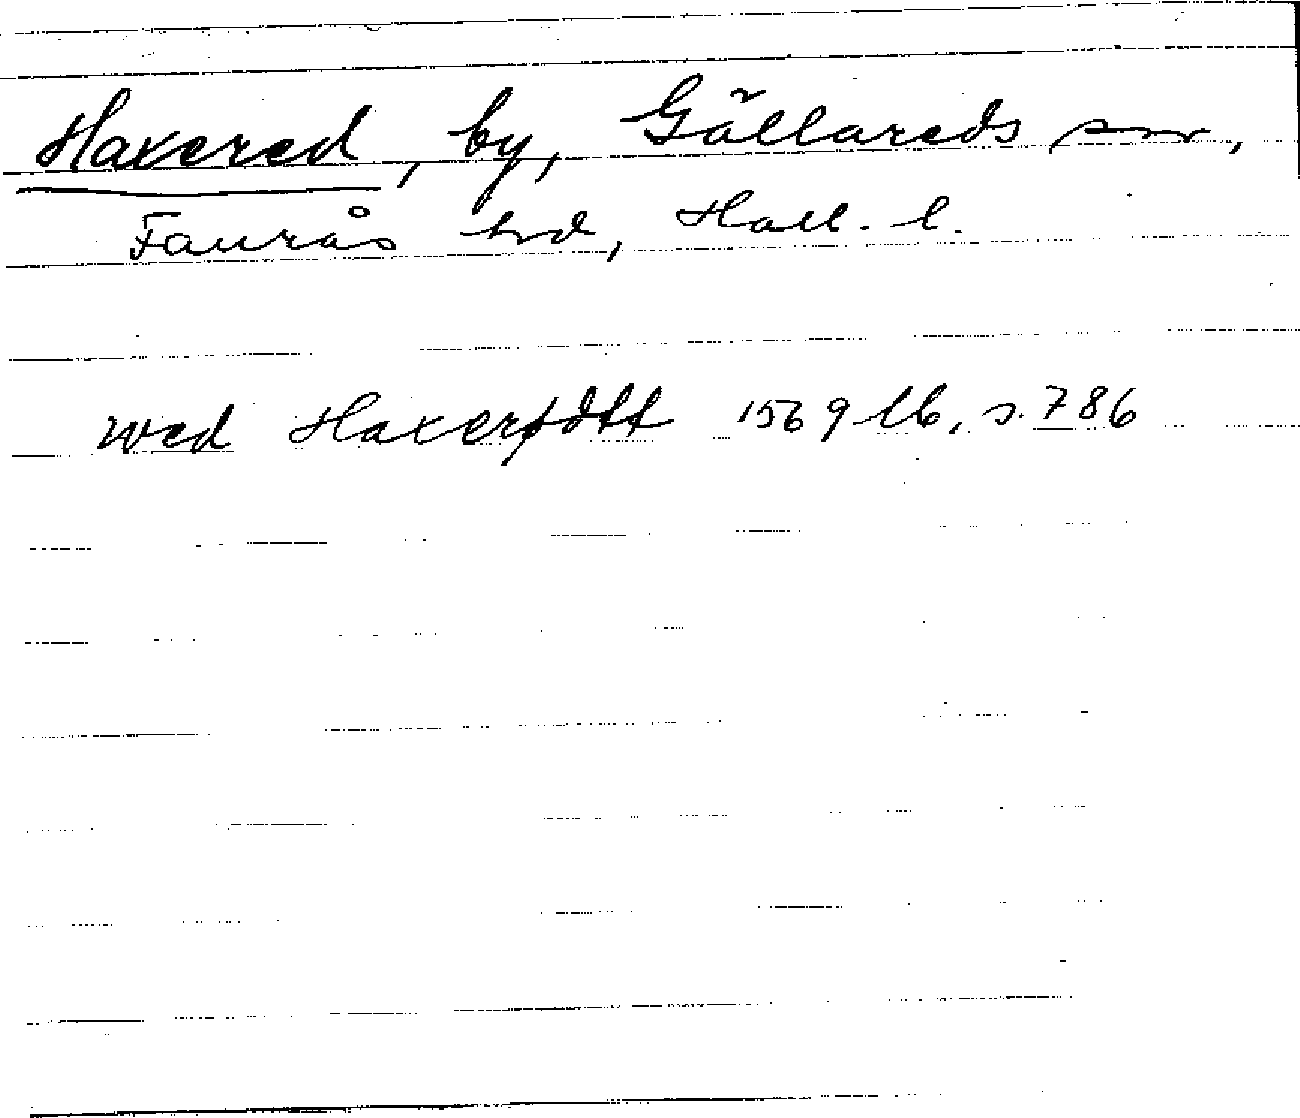 Haxered, by, Gällareds sn,
Faurås hd, Hall. l.
wed Haxerødtt 1569 lb, s. 786